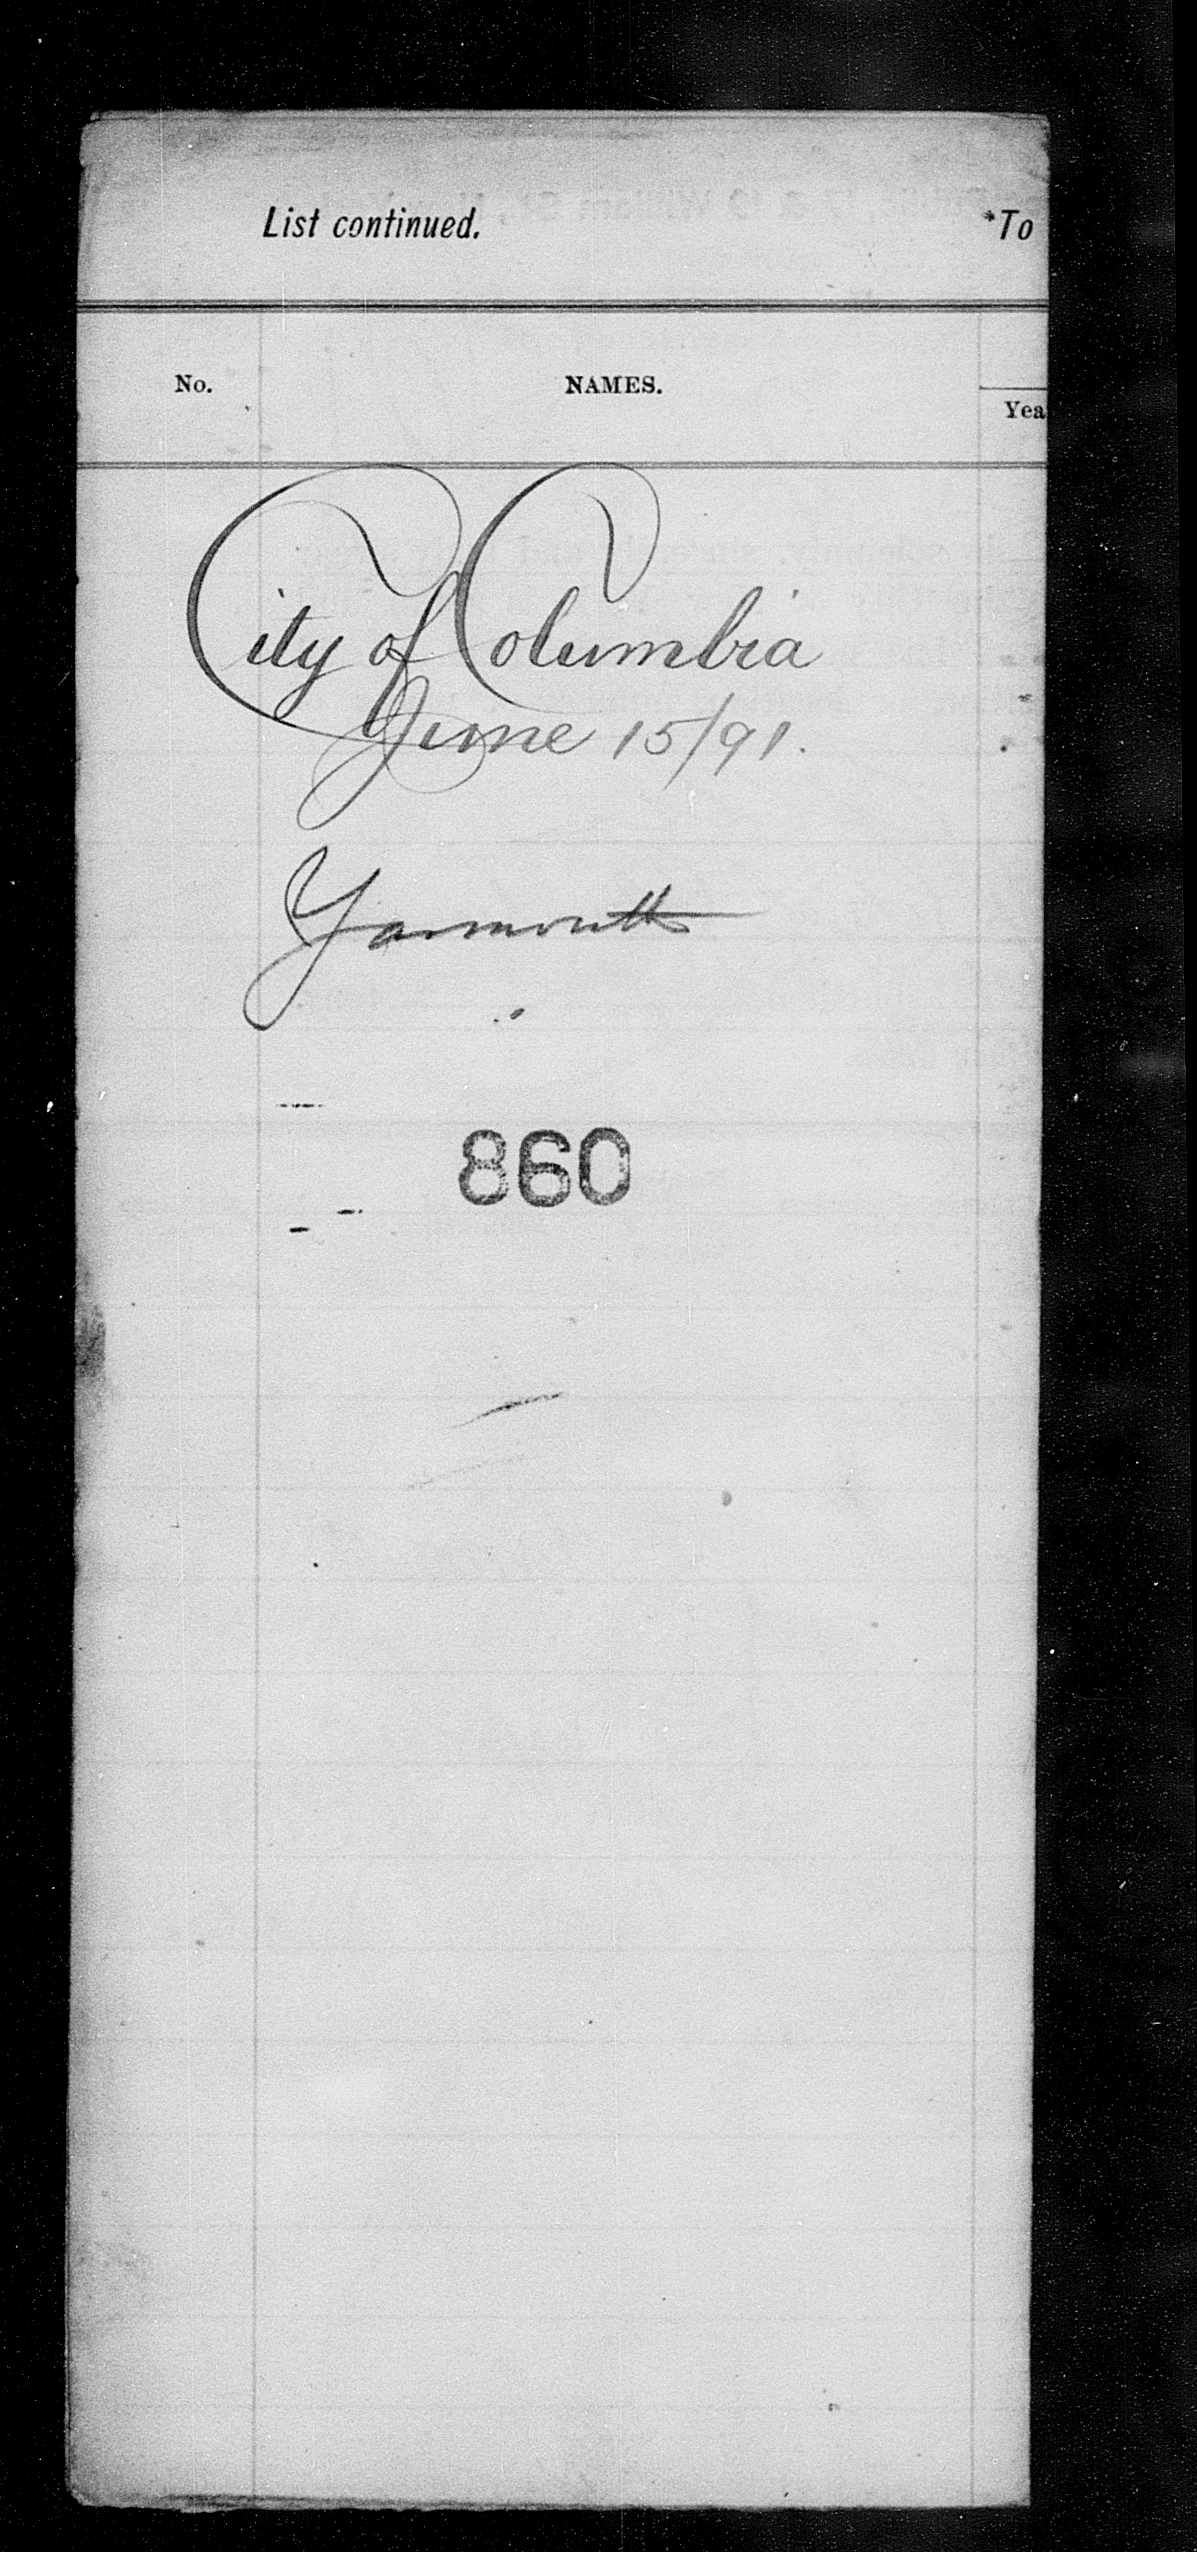 List continued.
*To
No.
NAMES.
Yea
City of Columbia
June 15/91.
Yarmouth
860